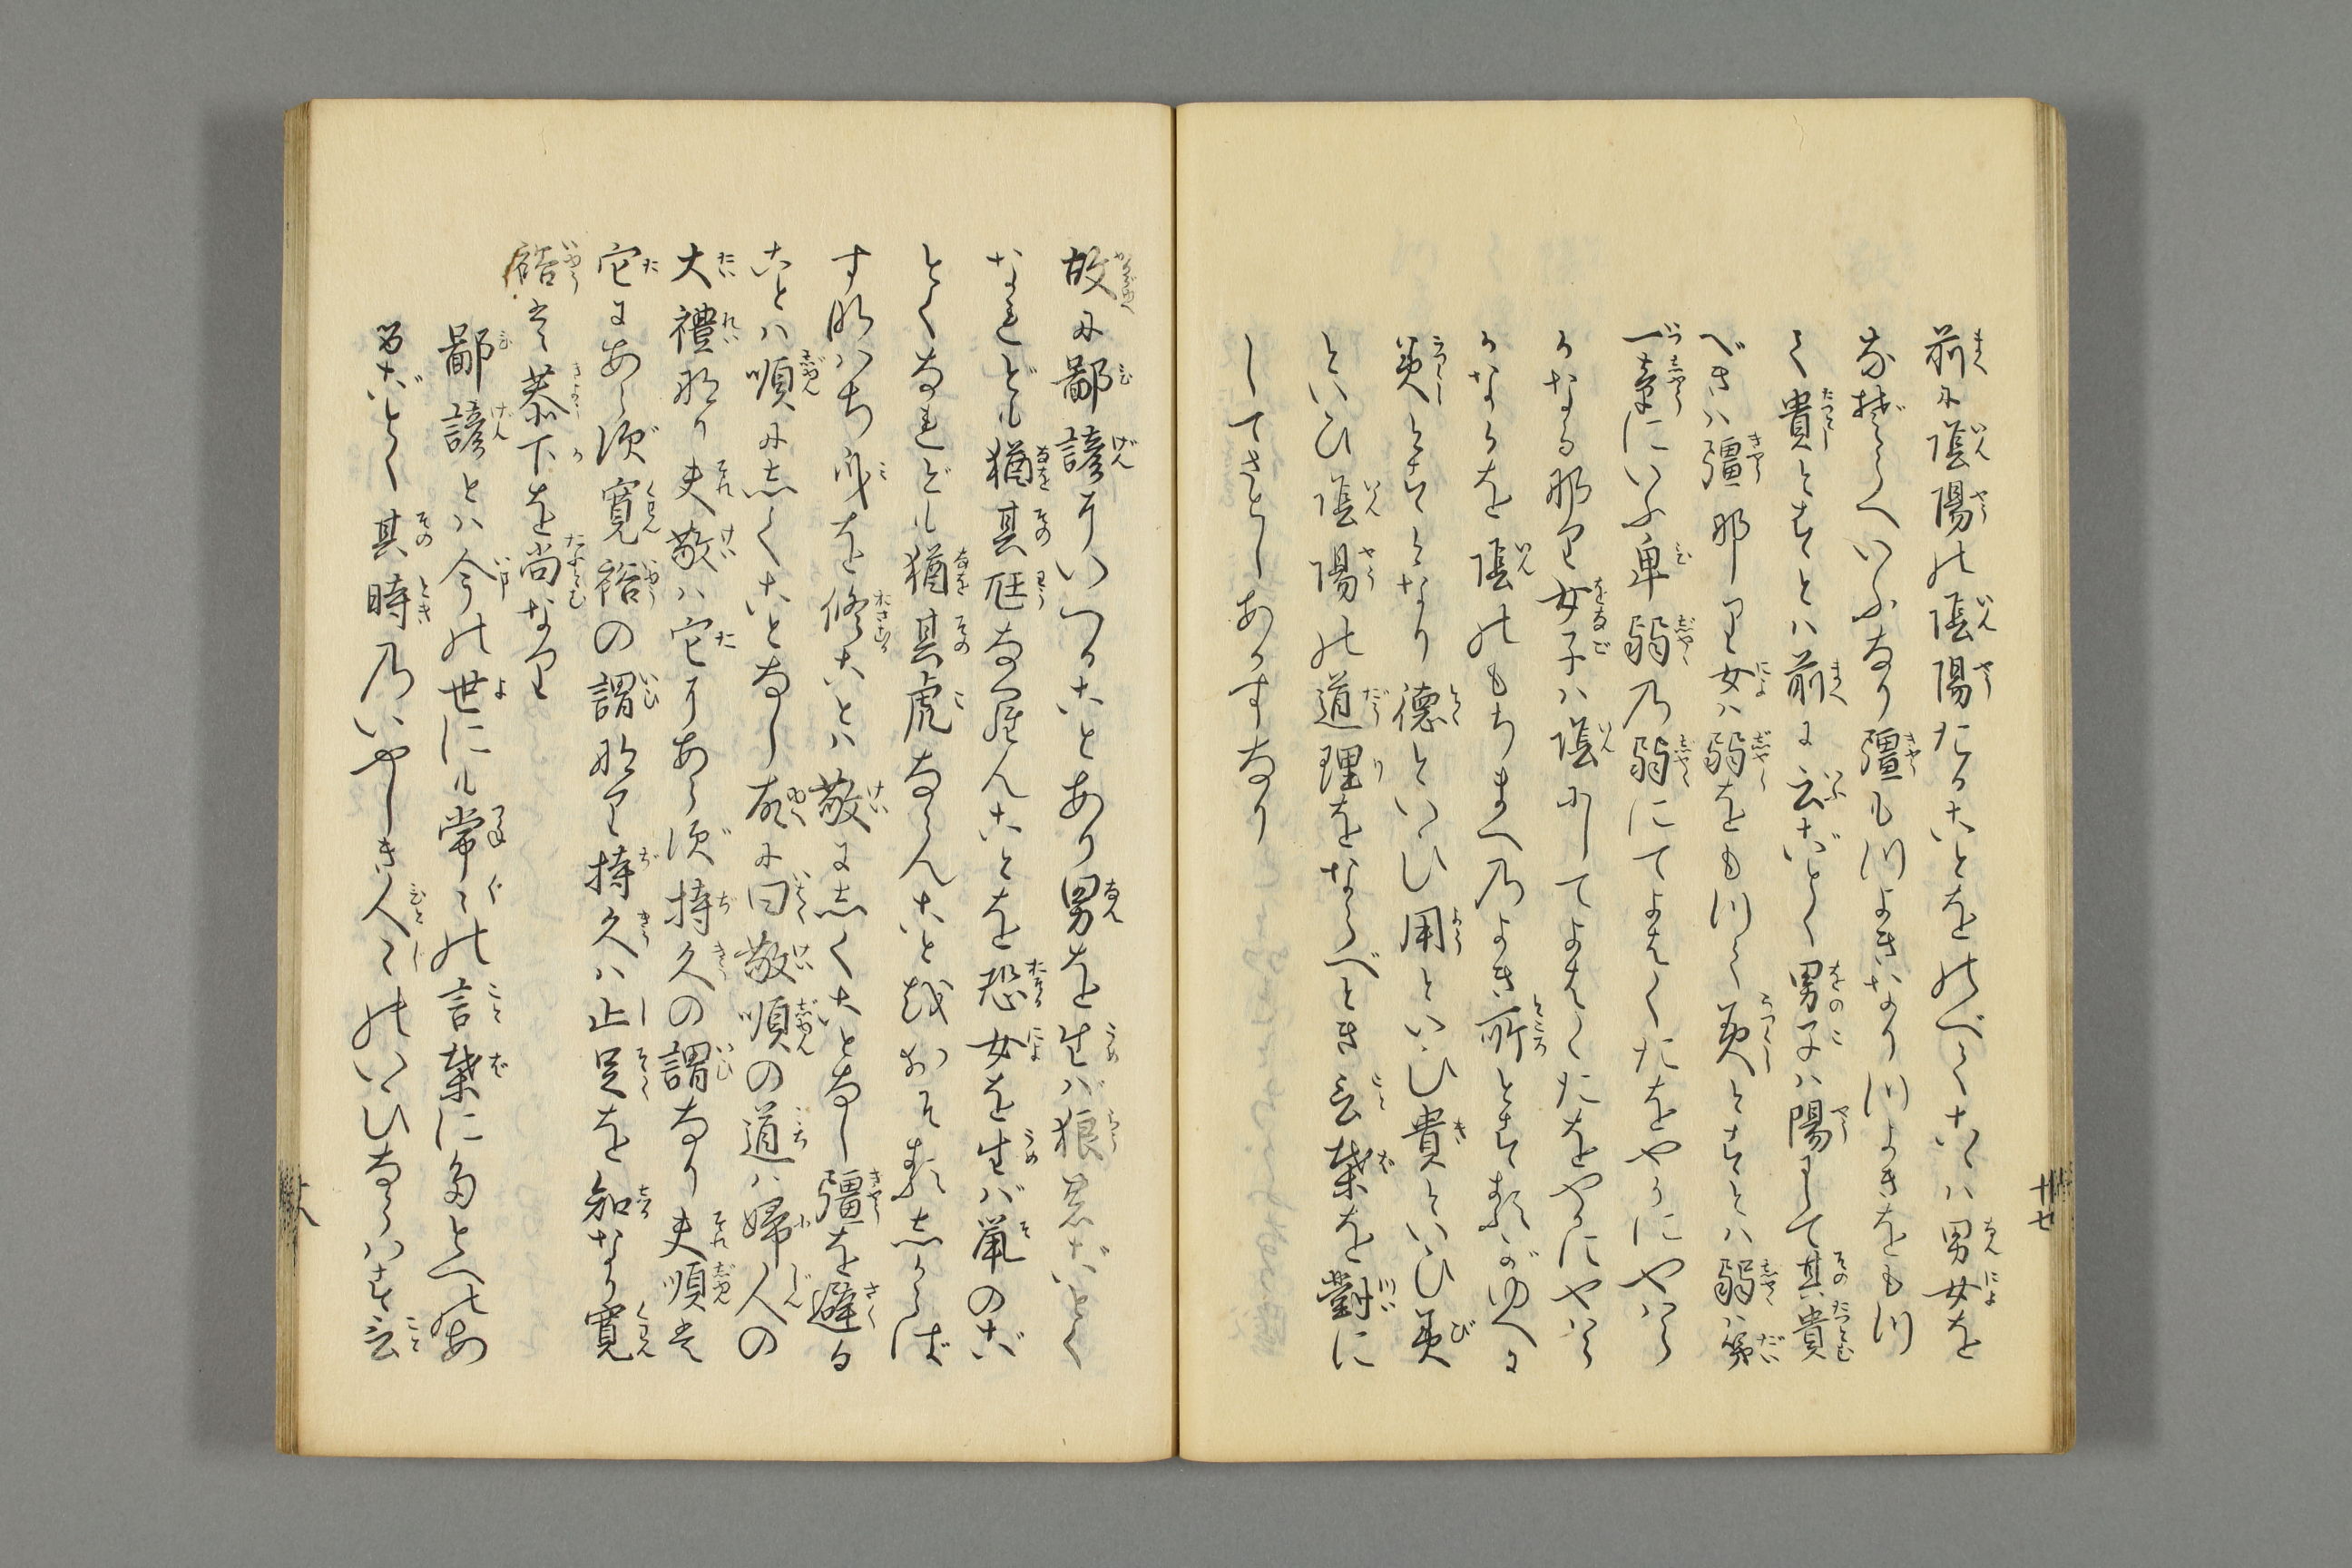 前に陰陽の陰陽たることをのべてこゝハ男女を
なぞらへいふなり彊もつよきなりつよきをもつ
て貴とすとハ前に云ごとく男子ハ陽にして其貴
べきハ彊なり女ハ弱をもつて美とすとハ弱ハ第
一章にいふ卑弱の弱にてよはくたをやかにやハら
かなるなり女子ハ陰にしてよはくたをやかにやハら
かなるを陰のもちまへのよき所とするがゆへに
美とすとなり徳といひ用といひ貴といひ美
といひ陰陽の道理をならべとき言葉を對に
してさとしあかすなり
廿七
故に鄙諺にいへることあり男を生バ狼のごとく
なれども猶其尫ならんことを恐女を生バ鼠のご
とくなれども猶其虎ならんことをおそるしからば
すなハち身を修ことハ敬にしくことなし彊を避る
ことハ順にしくことなし故に曰敬順の道ハ婦人の
大禮なり夫敬ハ它にあらず持久の謂なり夫順ハ
它にあらず寛裕の謂なり持久ハ止足を知なり寛
裕ハ恭下を尚なり
鄙諺とハ今の世にも常〻の言葉にたとへのあ
るごとく其時のいやしき人〻のいひならハす言